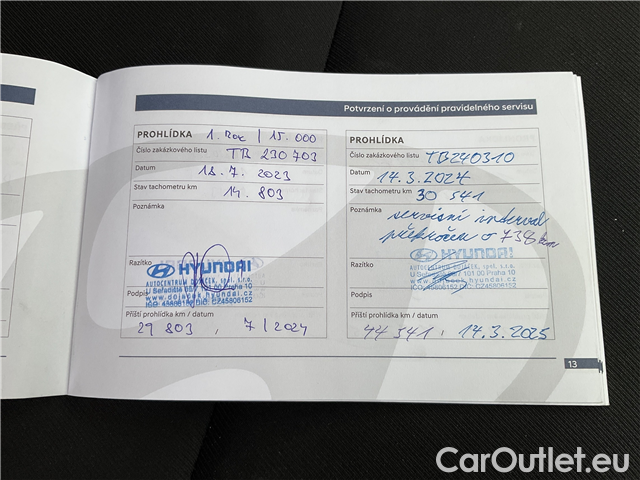 Potvrzení o provádění pravidelného servisu
PROHLÍDKA 1. ROK / 15.000
Číslo zakázkového listu TB 230703
Datum 18.7. 2023
Stav tachometru km 14.803
Poznámka
Razítko
HYUNDAI
AUTOCENTRUM DOJÁČEK, spol. s r.o.
Praha 10
www.dojacek.hyundai.cz
CZ45806152
Podpis
Příští prohlídka km / datum
29 803, 7/2024
PROHLÍDKA
Číslo zakázkového listu TB240310
Datum 14.3.2024
Stav tachometru km 30 541
Poznámka servisní interval
překročen o 738 km
Razítko
HYUNDAI
AUTOCENTRUM DOJÁČEK, spol. s r.o.
101 00 Praha 10
CZ45806152
Podpis
Příští prohlídka km / datum
44 541, 14.3.2025
13
CarOutlet.eu